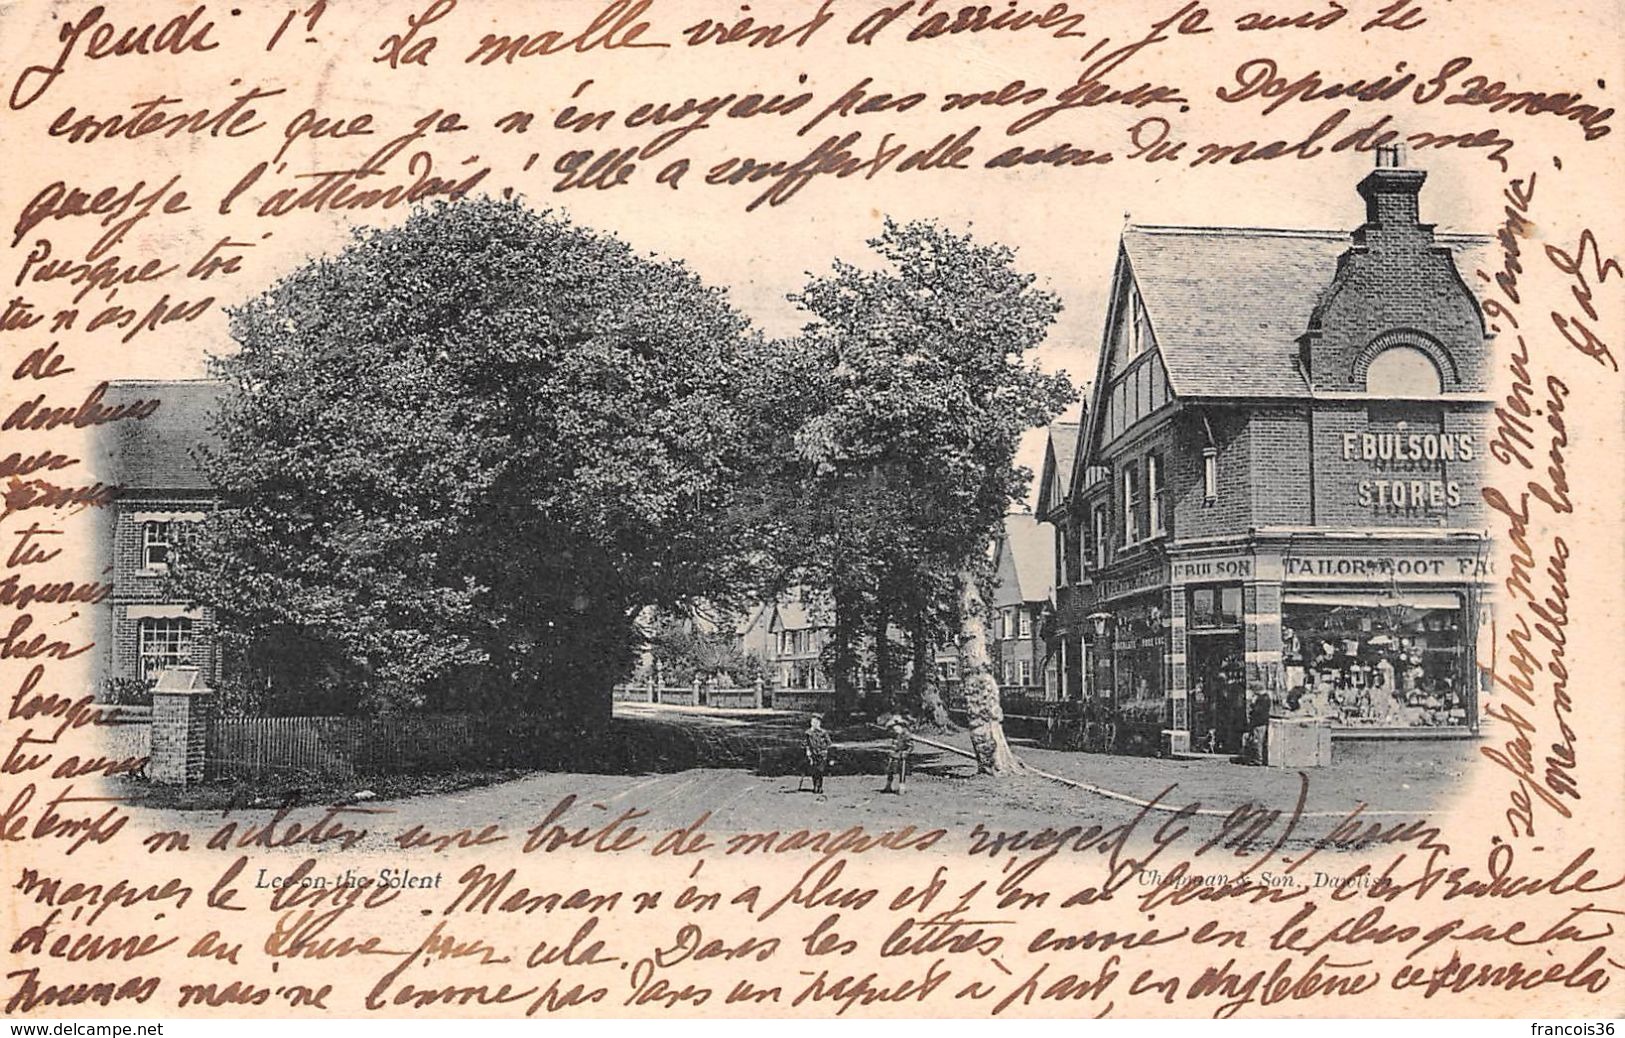 Jeudi 1r La malle vient d'arriver, je suis si
contente que je n'en croyais pas mes yeux. Depuis 3 semaines
que je l'attendais! Elle a souffert elle aussi du mal de mer
Puisque toi
tu n'as pas
de
douleurs
aux
tu
pourras
bien
lorsque
tu auras
le temps m'acheter une boîte de marques rouges (G M) pour
marquer le linge. Maman n'en a plus et j'en ai besoin, c'est ridicule
d'écrire au Louvre pour cela. Dans les lettres envoie en le plus que tu
pourras mais ne l'envoie pas dans un paquet à part, en Angleterre ce
se fait trop mal. Merci d'avance.
Mes meilleurs baisers
F. BULSON'S
STORES
F. BULSON
TAILOR BOOT FA
Lee-on-the-Solent
Chapman & Son, Dawlish
www.delcampe.net
francois36